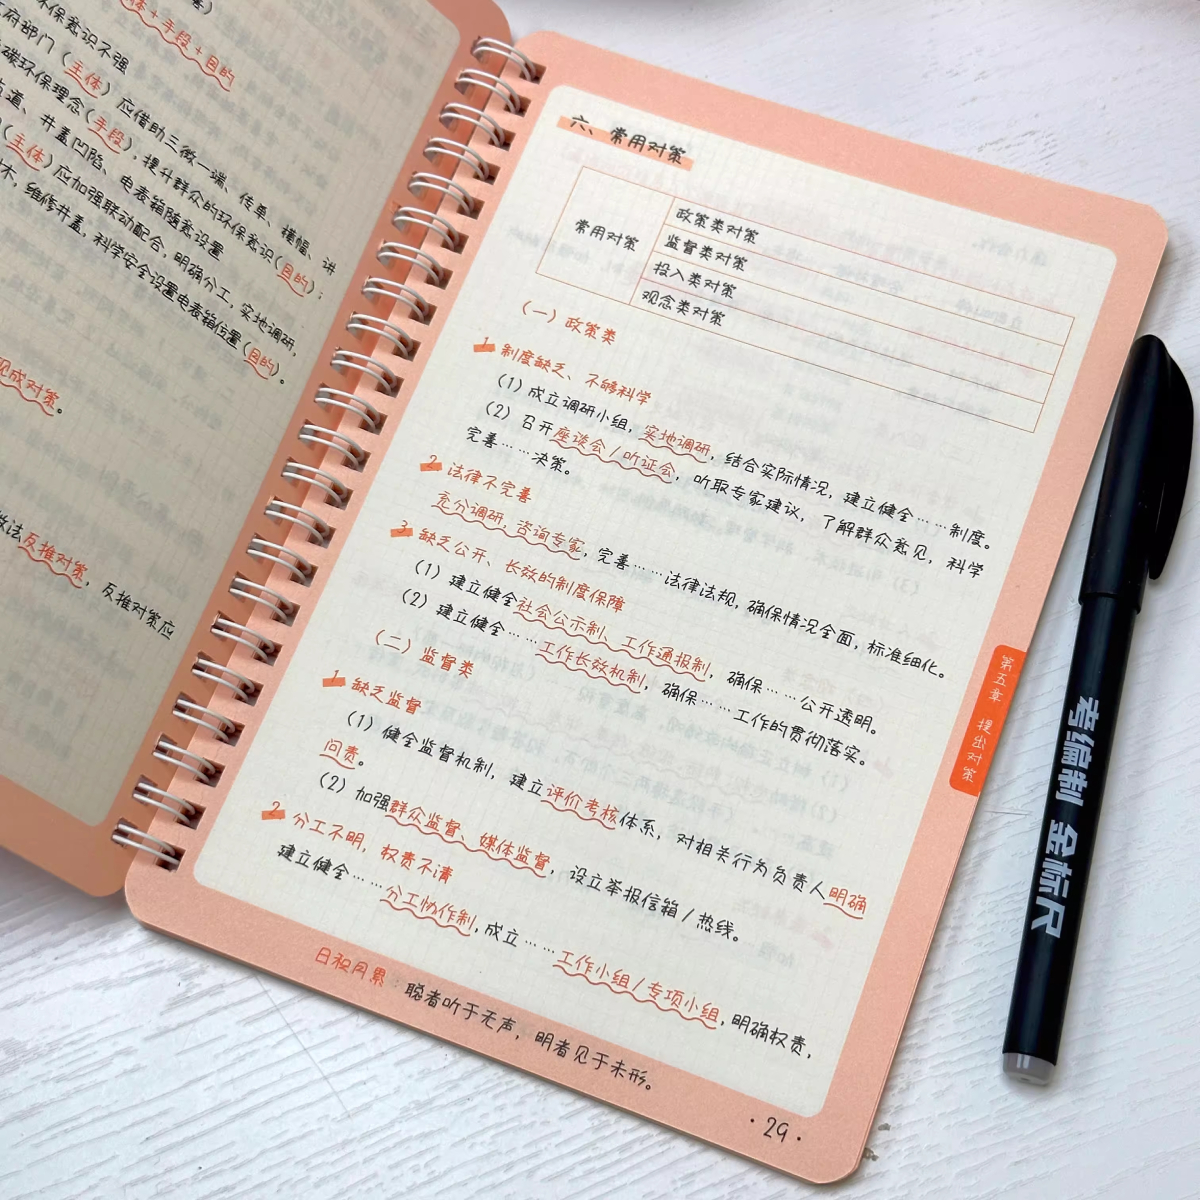 体＋手段＋目的
环保意识不强
府部门（主体）应借助三微一端、传单、横幅、讲
碳环保理念（手段），提升群众的环保意识（目的）；
道、井盖凹陷、电表箱随意设置
（主体）应加强联动配合，明确分工，实地调研，
木，维修井盖，科学安全设置电表箱位置（目的）。
现成对策。
做法反推对策，反推对策应
六、常用对策
常用对策
政策类对策
监督类对策
投入类对策
观念类对策
（一）政策类
1 制度缺乏、不够科学
（1）成立调研小组，实地调研，结合实际情况，建立健全……制度。
（2）召开座谈会/听证会，听取专家建议，了解群众意见，科学
完善……决策。
2 法律不完善
充分调研，咨询专家，完善……法律法规，确保情况全面，标准细化。
3 缺乏公开、长效的制度保障
（1）建立健全社会公示制、工作通报制，确保……公开透明。
（2）建立健全……工作长效机制，确保……工作的贯彻落实。
（二）监督类
1 缺乏监督
（1）健全监督机制，建立评价考核体系，对相关行为负责人明确
问责。
（2）加强群众监督、媒体监督，设立举报信箱/热线。
2 分工不明，权责不清
建立健全……分工协作制，成立……工作小组/专项小组，明确权责，
日积月累：聪者听于无声，明者见于未形。
·29·
第五章 提出对策
考编制 金标尺